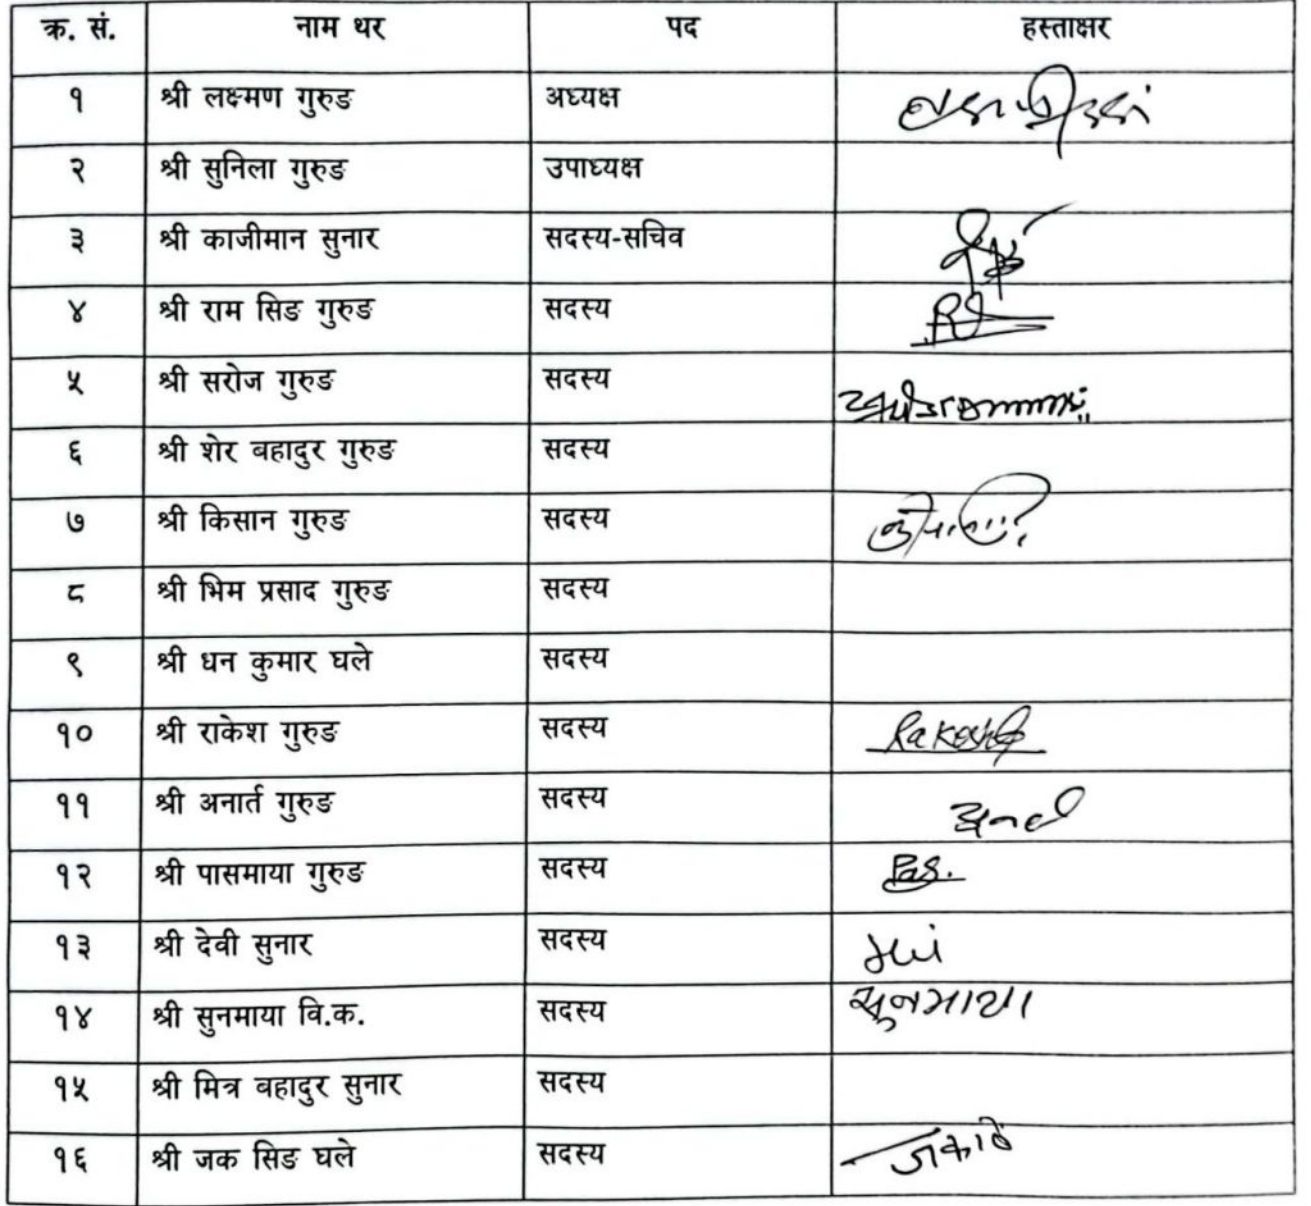 क्र. सं. नाम थर पद हस्ताक्षर
१ श्री लक्ष्मण गुरुङ अध्यक्ष
२ श्री सुनिला गुरुङ उपाध्यक्ष
३ श्री काजीमान सुनार सदस्य-सचिव
४ श्री राम सिङ गुरुङ सदस्य
५ श्री सरोज गुरुङ सदस्य
६ श्री शेर बहादुर गुरुङ सदस्य
७ श्री किसान गुरुङ सदस्य
८ श्री भिम प्रसाद गुरुङ सदस्य
९ श्री धन कुमार घले सदस्य
१० श्री राकेश गुरुङ सदस्य
११ श्री अनार्त गुरुङ सदस्य
१२ श्री पासमाया गुरुङ सदस्य Pas.
१३ श्री देवी सुनार सदस्य
१४ श्री सुनमाया वि.क. सदस्य सुनमाया
१५ श्री मित्र बहादुर सुनार सदस्य
१६ श्री जक सिङ घले सदस्य